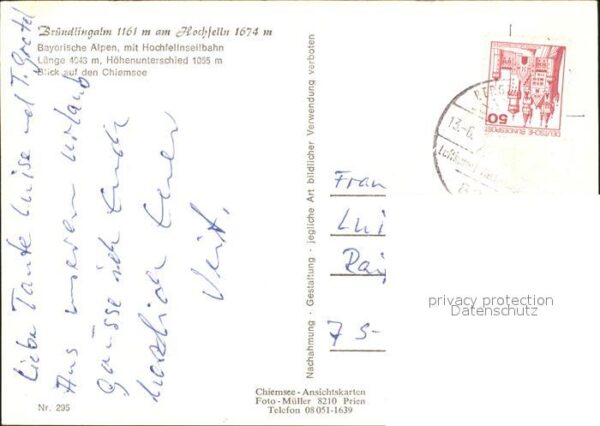 Bründlingalm 1161 m am Hochfelln 1674 m
Bayerische Alpen, mit Hochfellnseilbahn
Länge 4043 m, Höhenunterschied 1055 m
Blick auf den Chiemsee
Liebe Tante Luise und T. Gretel
Aus unserem Urlaub
grüsse ich Euch
herzlich Euer
Veit.
Nachahmung - Gestaltung - jegliche Art bildlicher Verwendung verboten
50
DEUTSCHE BUNDESPOST
BERG
13.-6.
Luftkurort
Frau
Lui
75-
privacy protection
Datenschutz
Chiemsee-Ansichtskarten
Foto-Müller 8210 Prien
Telefon 08051-1639
Nr. 295